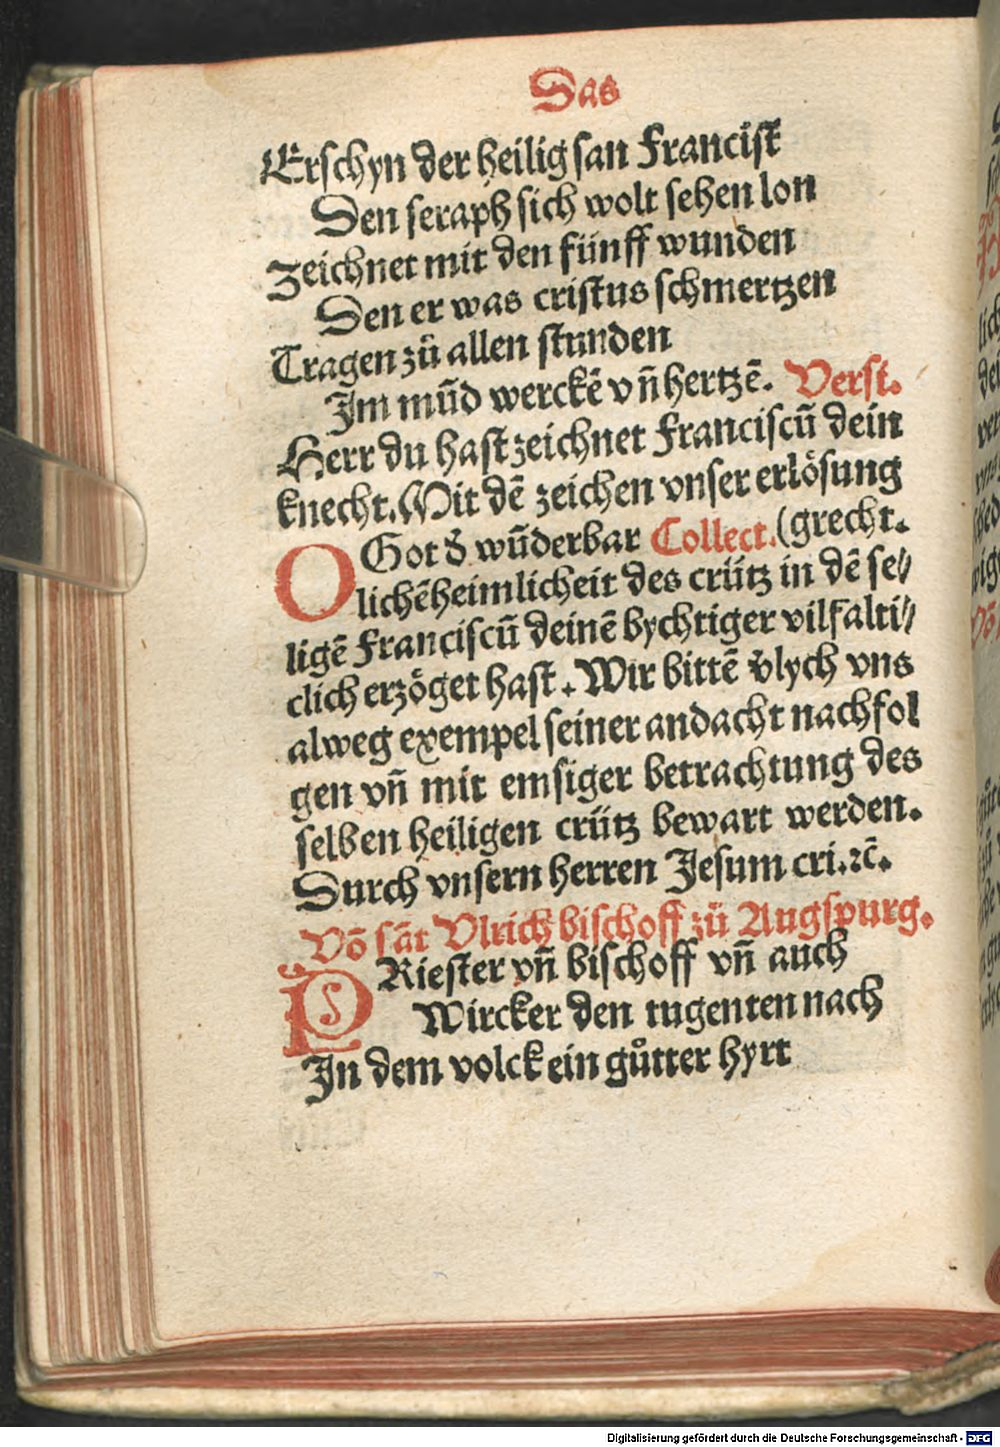 Das
Erschyn der heilig san Francisk
Den seraph sich wolt sehen lon
zeichnet mit den fünff wunden
Den er was cristus schmertzen
Tragen zů allen stunden
Im mūd werckē vñ hertzē. Verst.
Herr du hast zeichnet Franciscū dein
knecht. Mit dē zeichen vnser erlösung
O Got d̓ wūderbar Collect. (grecht.
lichē heimlicheit des crütz in dē se⸗
ligē Franciscū deinē bychtiger vilfalti⸗
clich erzöget hast. Wir bittē v̓lych vns
alweg exempel seiner andacht nachfol
gen vñ mit emsiger betrachtung des
selben heiligen crütz bewart werden.
Durch vnsern herren Jesum cri. ꝛc̄.
Vō sāt Vlrich bischoff zů Augspurg.
PRiester vñ bischoff vñ auch
Wircker den tugenten nach
In dem volck ein gůtter hyrt
Digitalisierung gefördert durch die Deutsche Forschungsgemeinschaft - DFG